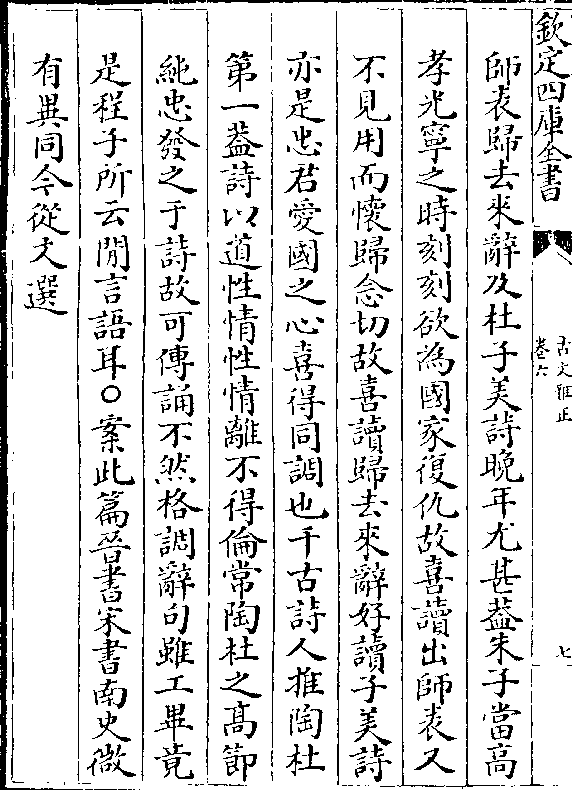 欽定四庫全書
古文雅正
卷六
七
師表歸去來辭及杜子美詩晚年尤甚葢朱子當高
孝光寧之時刻刻欲為國家復仇故喜讀出師表又
不見用而懷歸念切故喜讀歸去來辭好讀子美詩
亦是忠君愛國之心喜得同調也千古詩人推陶杜
第一葢詩以道性情性情離不得倫常陶杜之髙節
純忠發之于詩故可傳誦不然格調辭句雖工畢竟
是程子所云閒言語耳○案此篇晉書宋書南史微
有異同今從文選